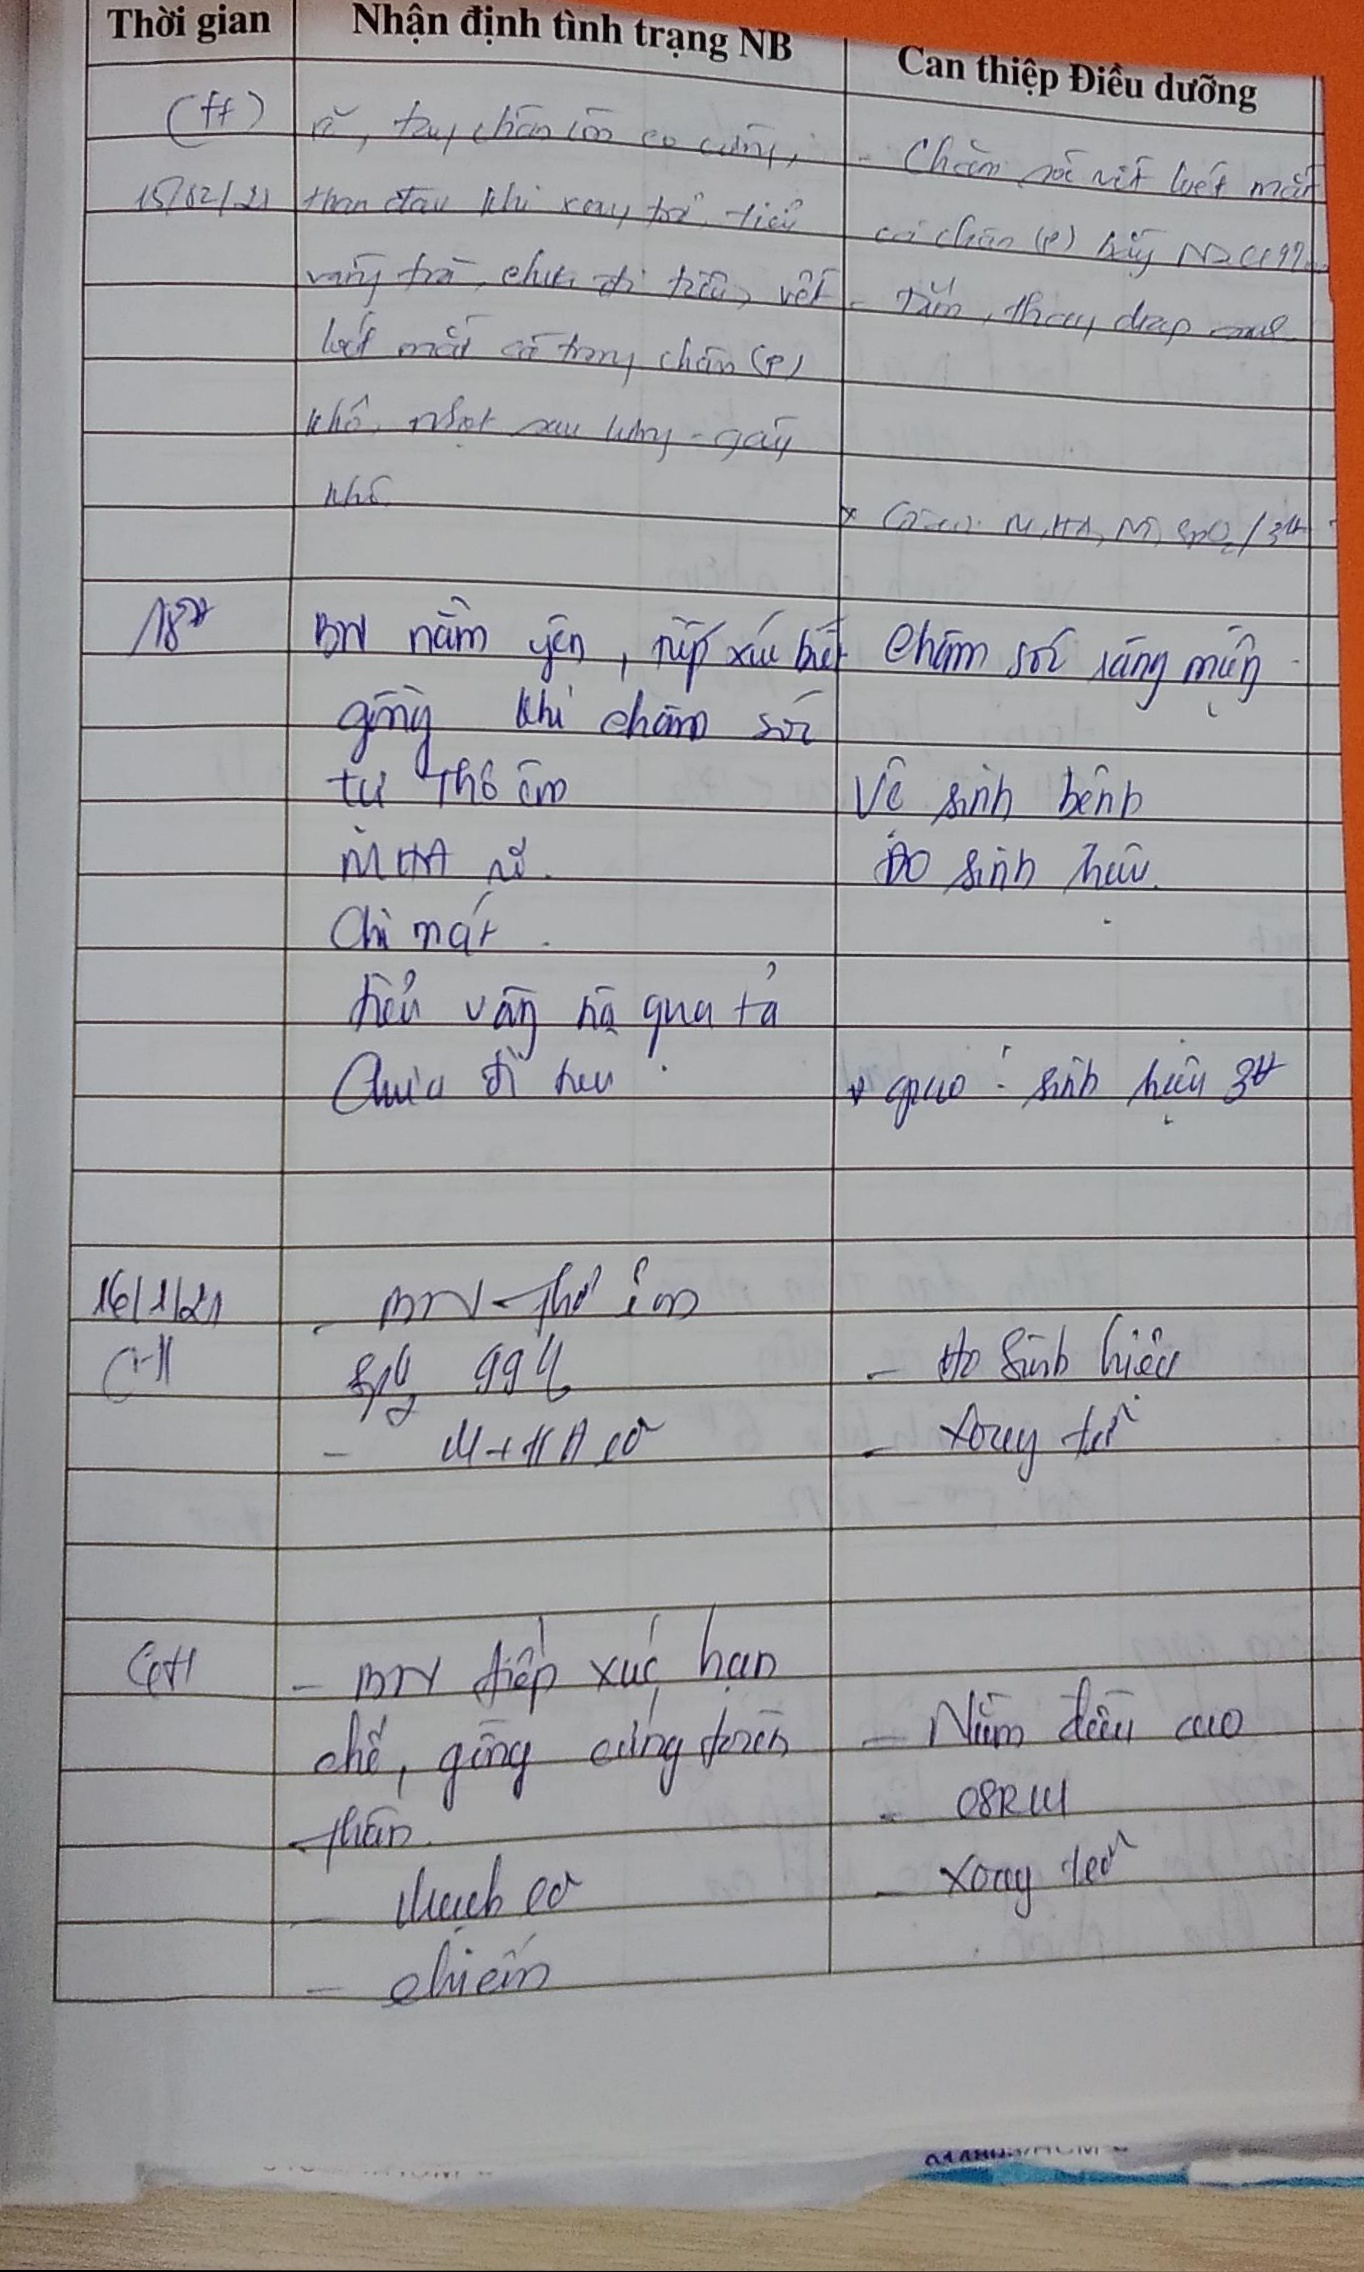 Thời gian Nhận định tình trạng NB Can thiệp Điều dưỡng
(tt) tay chân còn co cứng, - Chăm sóc vết loét mắt
15/02/21 than đau khi xoay trở, tiểu cá chân (P) bằng NaCl 9‰
vàng trà, chưa đi tiêu, vết - tắm, thay drap
loét mắt cá trong chân (P)
khô, mụn sau lưng - gáy
khô. M, HA, SpO2/3H
18H BN nằm yên, tiếp xúc biết Chăm sóc răng miệng
gồng khi chăm sóc
tự thở êm Vệ sinh bệnh
M HA rõ. Đo sinh hiệu.
Chi mát.
tiểu vàng qua tã
Chưa đi tiêu. sinh hiệu 3H
16/1/21 - BN thở êm
SpO2 99% - Đo sinh hiệu
- M + HA - xoay trở
6H - BN tiếp xúc hạn
chế, gồng cứng toàn - Nằm đầu cao
thân. - CSRM
- Mạch - xoay trở